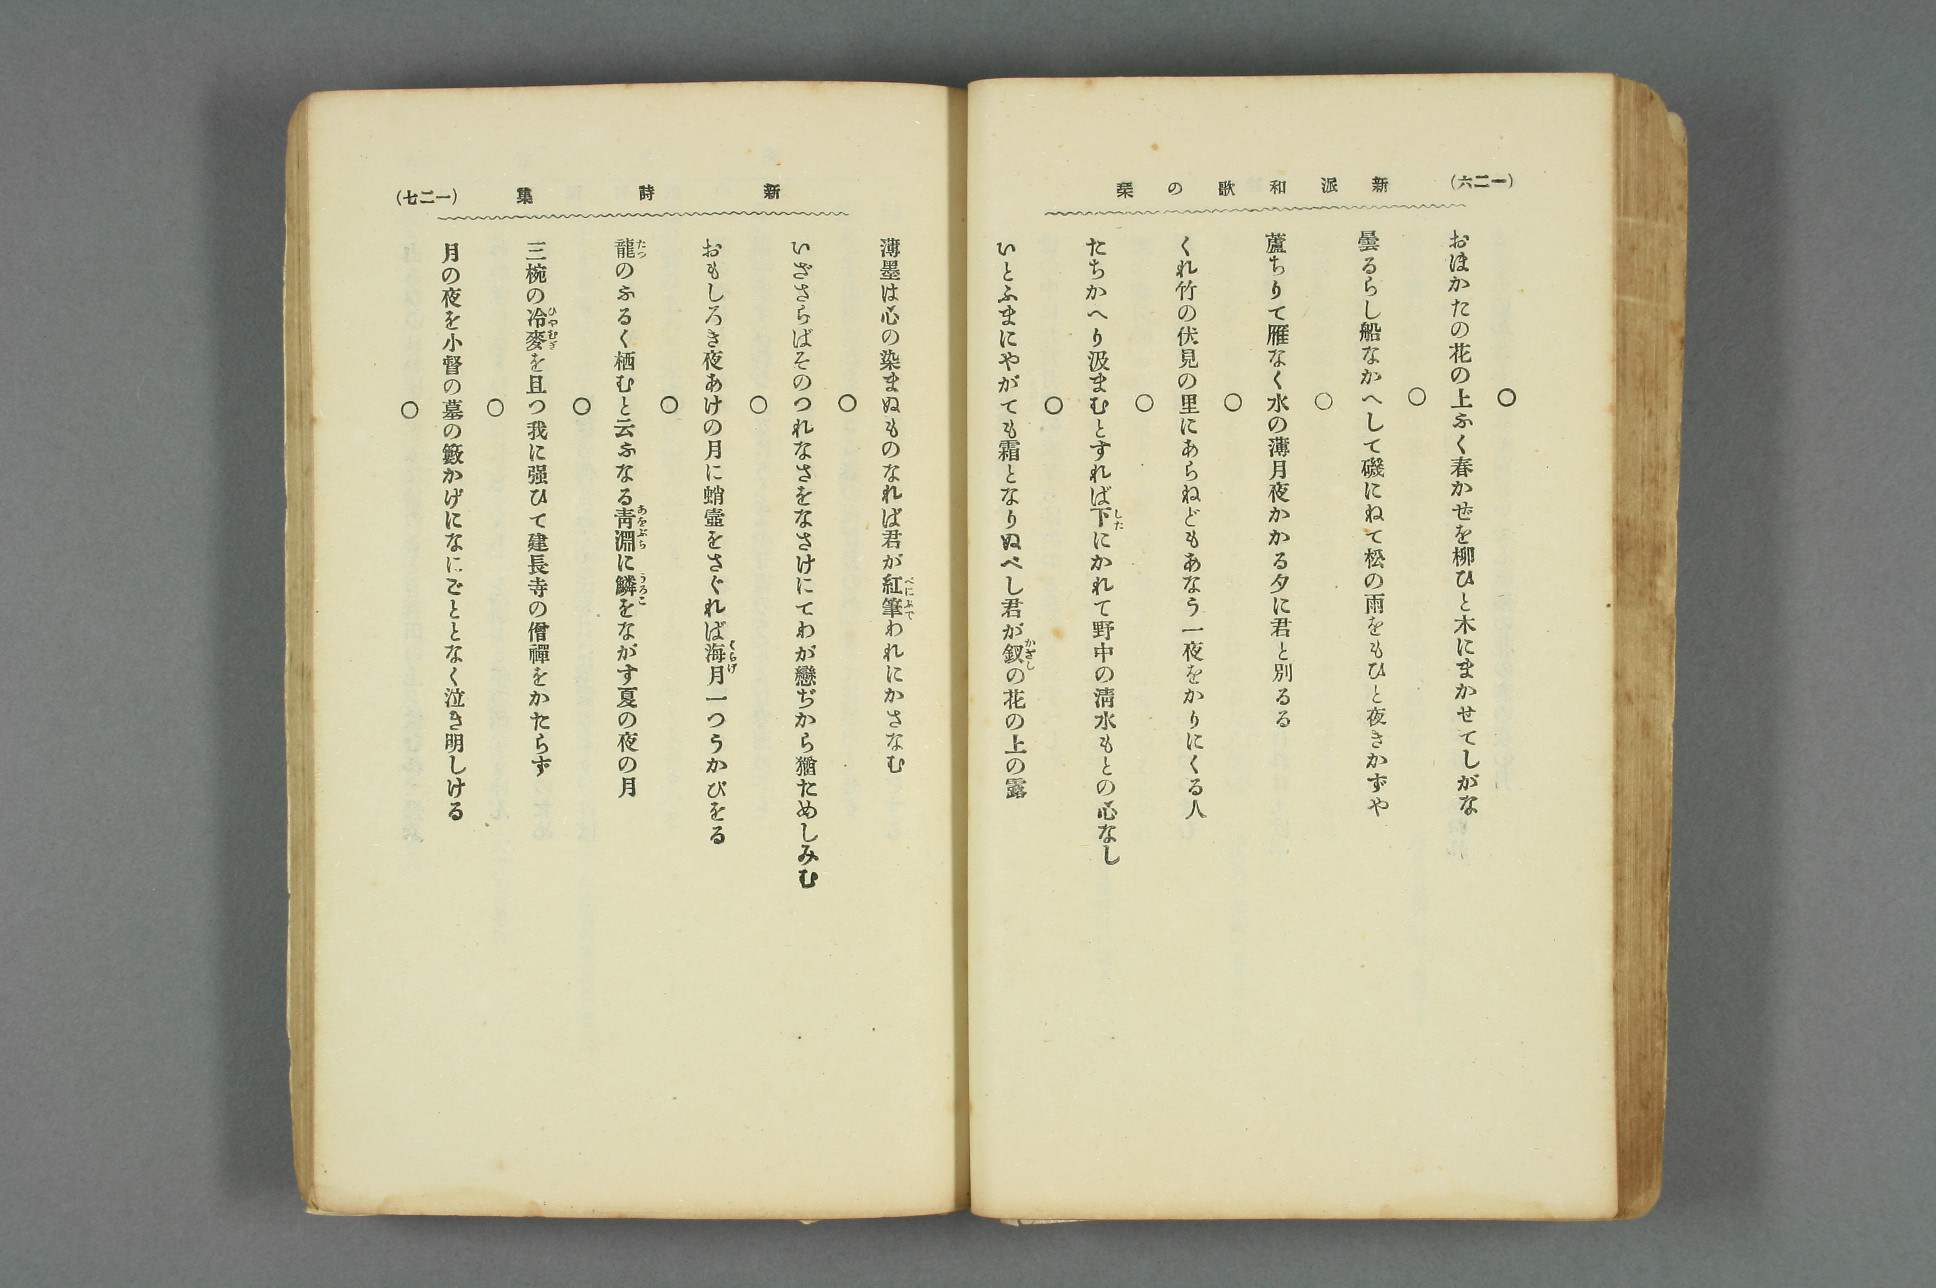 (一二六)
新派和歌の栞
○
おほかたの花の上ふく春かぜを柳ひと木にまかせてしがな
○
曇るらし船なかへして磯にねて松の雨をもひと夜きかずや
○
蘆ちりて雁なく水の薄月夜かかる夕に君と別るる
○
くれ竹の伏見の里にあらねどもあなう一夜をかりにくる人
○
たちかへり汲まむとすれば下にかれて野中の清水もとの心なし
した
○
いとふまにやがても霜となりぬべし君が釵の花の上の露
かざし
新詩集
(一二七)
薄墨は心の染まぬものなれば君が紅筆われにかさなむ
べにふで
○
いざさらばそのつれなさをなさけにてわが戀ぢから猶ためしみむ
○
おもしろき夜あけの月に蛸壺をさぐれば海月一つうかびをる
くらげ
○
龍のふるく栖むと云ふなる靑淵に鱗をながす夏の夜の月
たつ
あをぶち
うろこ
○
三椀の冷麥を且つ我に强ひて建長寺の僧禪をかたらず
ひやむぎ
○
月の夜を小督の墓の籔かげになにごととなく泣き明しける
○